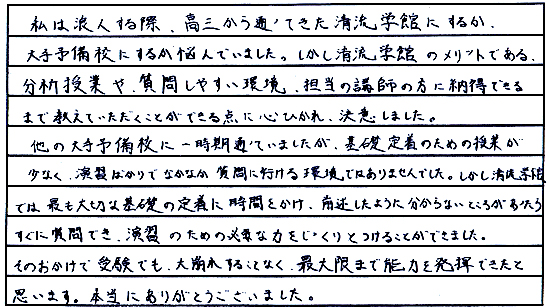 私は浪人する際、高三から通ってきた清流学館にするか、
大手予備校にするか悩んでいました。しかし清流学館のメリットである、
分析授業や、質問しやすい環境、担当の講師の方に納得できる
まで教えていただくことができる点に心ひかれ、決意しました。
他の大手予備校に一時期通っていましたが、基礎定義のための授業が
少なく、演習ばかりでなかなか質問に行ける環境ではありませんでした。しかし清流学館
では最も大切な基礎の定義に時間をかけ、前述したように分からないところがあったら
すぐに質問でき、演習のための必要な力をじっくりとつけることができました。
そのおかげで受験でも、大崩れすることなく、最大限まで能力を発揮できたと
思います。本当にありがとうございました。